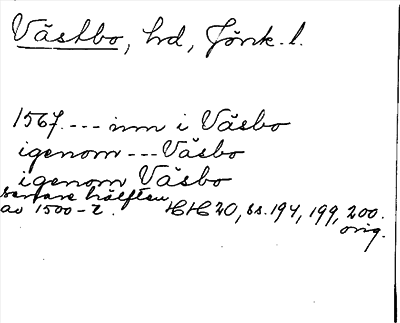 Västbo, hd, Jönk. l.
1567. --- inn i Väsbo
igenom --- Väsbo
igenom Väsbo
senare hälften
av 1500-t. HH 20, ss. 194, 199, 200.
orig.